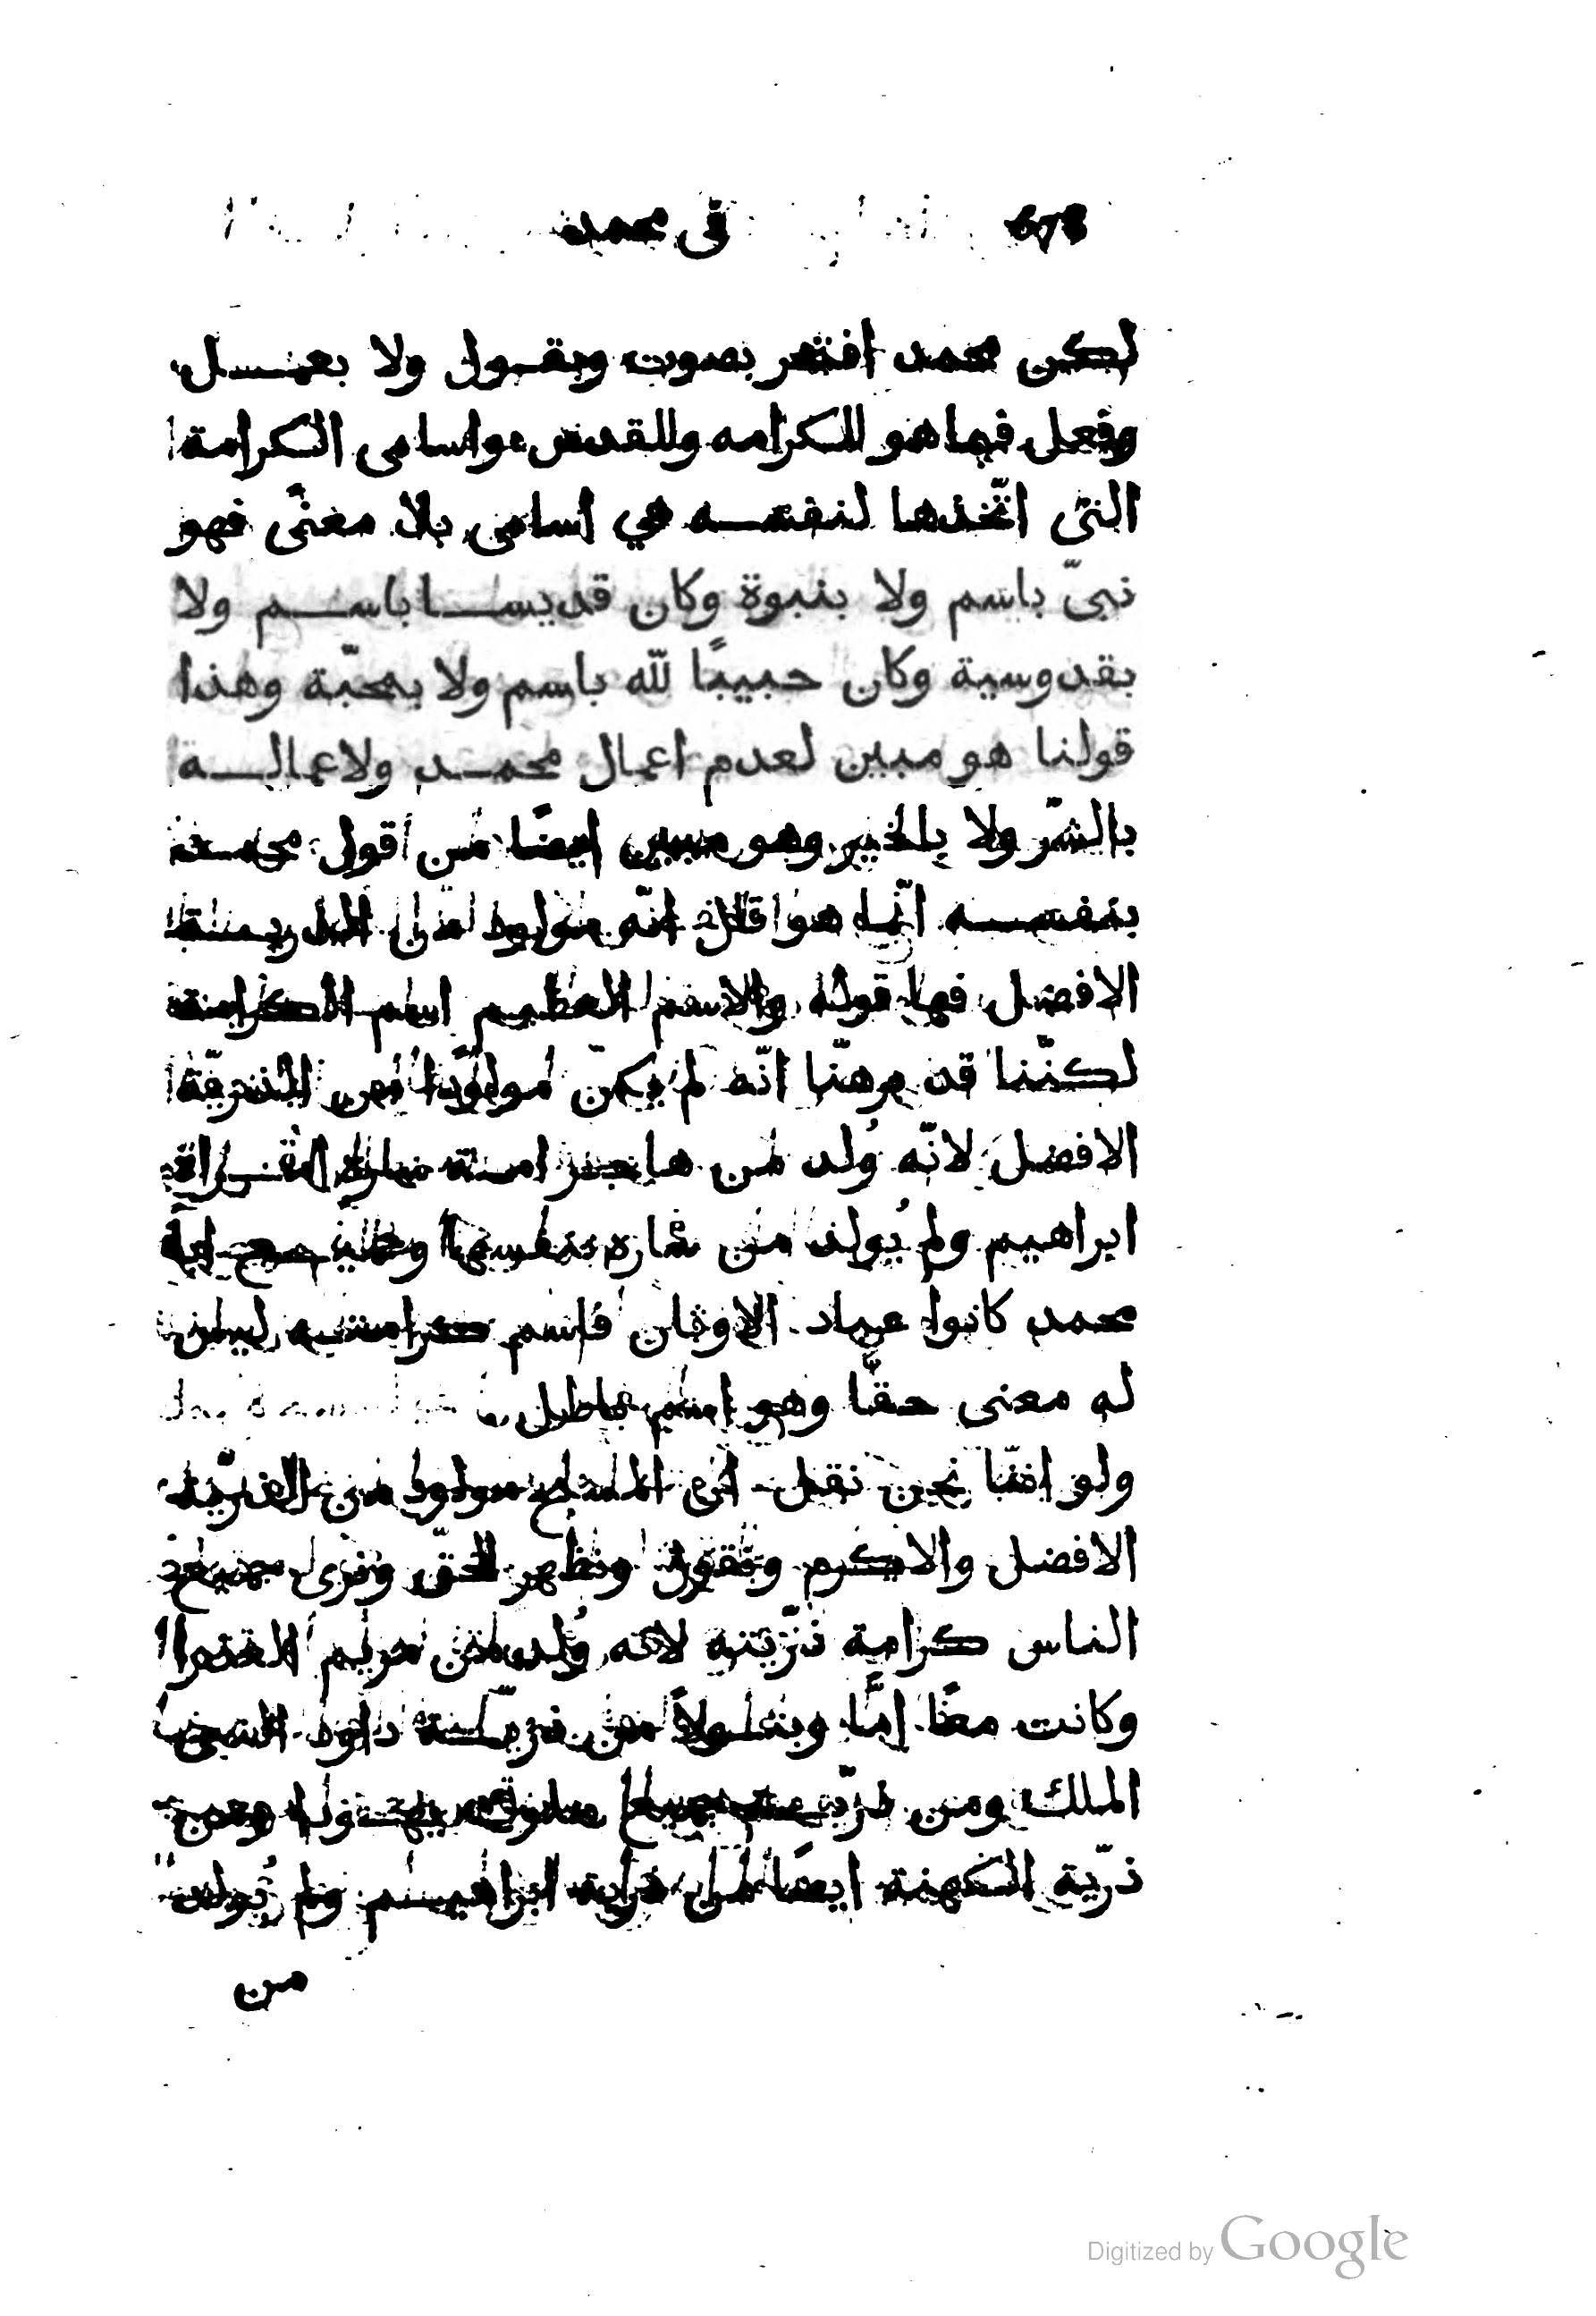 678
في محمد
لكن محمد افتخر بصوت وبقول ولا بعمل
وفعل فيما هو للكرامه وللقدس واسامى الكرامة
التى اتّخذها لنفسه هي اسامى بلا معنًى فهو
نبىّ باسم ولا بنبوة وكان قديسا باسم ولا
بقدوسية وكان حبيبًا للّه باسم ولا بمحبّة وهذا
قولنا هو مبين لعدم اعمال محمد ولاعماله
بالشرّ ولا بالخير وهو مبين ايضًا من اقول محمد
بنفسه انّما هو قال انّه مولود من الذرية
الافضل فها قوله والاسم العظيم اسم الكرامة
لكنّنا قد برهنّا انّه لم يكن مولودًا من الذريّة
الافضل لانّه وُلد من هاجر امة سارة امراة
ابراهيم ولم يُولد من سارة بنفسها وجميع ابآ
محمد كانوا عباد الاوثان فاسم كرامته ليس
له معنى حقًّا وهو اسم باطل
ولو اننّا نحن نقل ان المسيح مولود من الذريّة
الافضل والاكرم ونقول ونظهر الحقّ ونرى جميع
الناس كرامة ذرّيته لانّه وُلد من مريم العذرا
وكانت معًا امًّا وبتولاً من ذريّة داود النبى
الملك ومن ذرّية جميع ملوك يهودا ومن
ذرّية الكهنة ايضًا من ذرية ابراهيم ولم يُولد
من
Digitized by Google